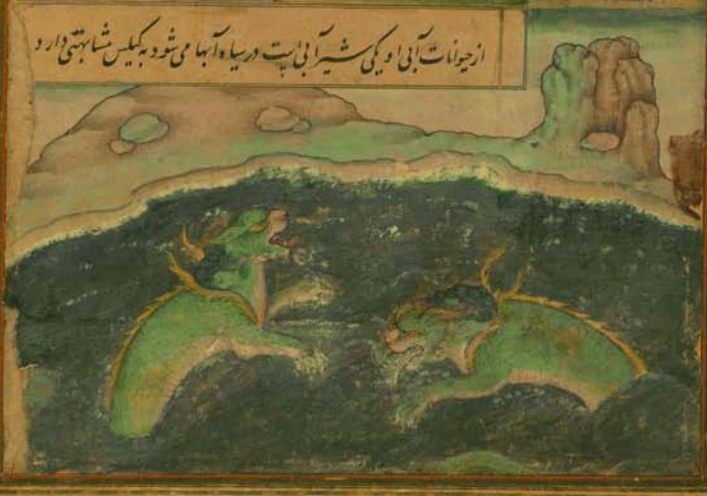 ازحیوانات آبی او یکی شیر آبی است در سیاه آبها می شود به کیلس مشابهتی دارد